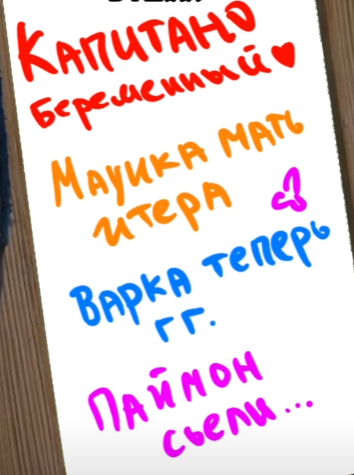 КАПИТАНО
беременный♥
МАУИКА МАТЬ
ИТЕРА
ВАРКА ТЕПЕРЬ
ГГ.
ПАЙМОН
СЬЕЛИ...